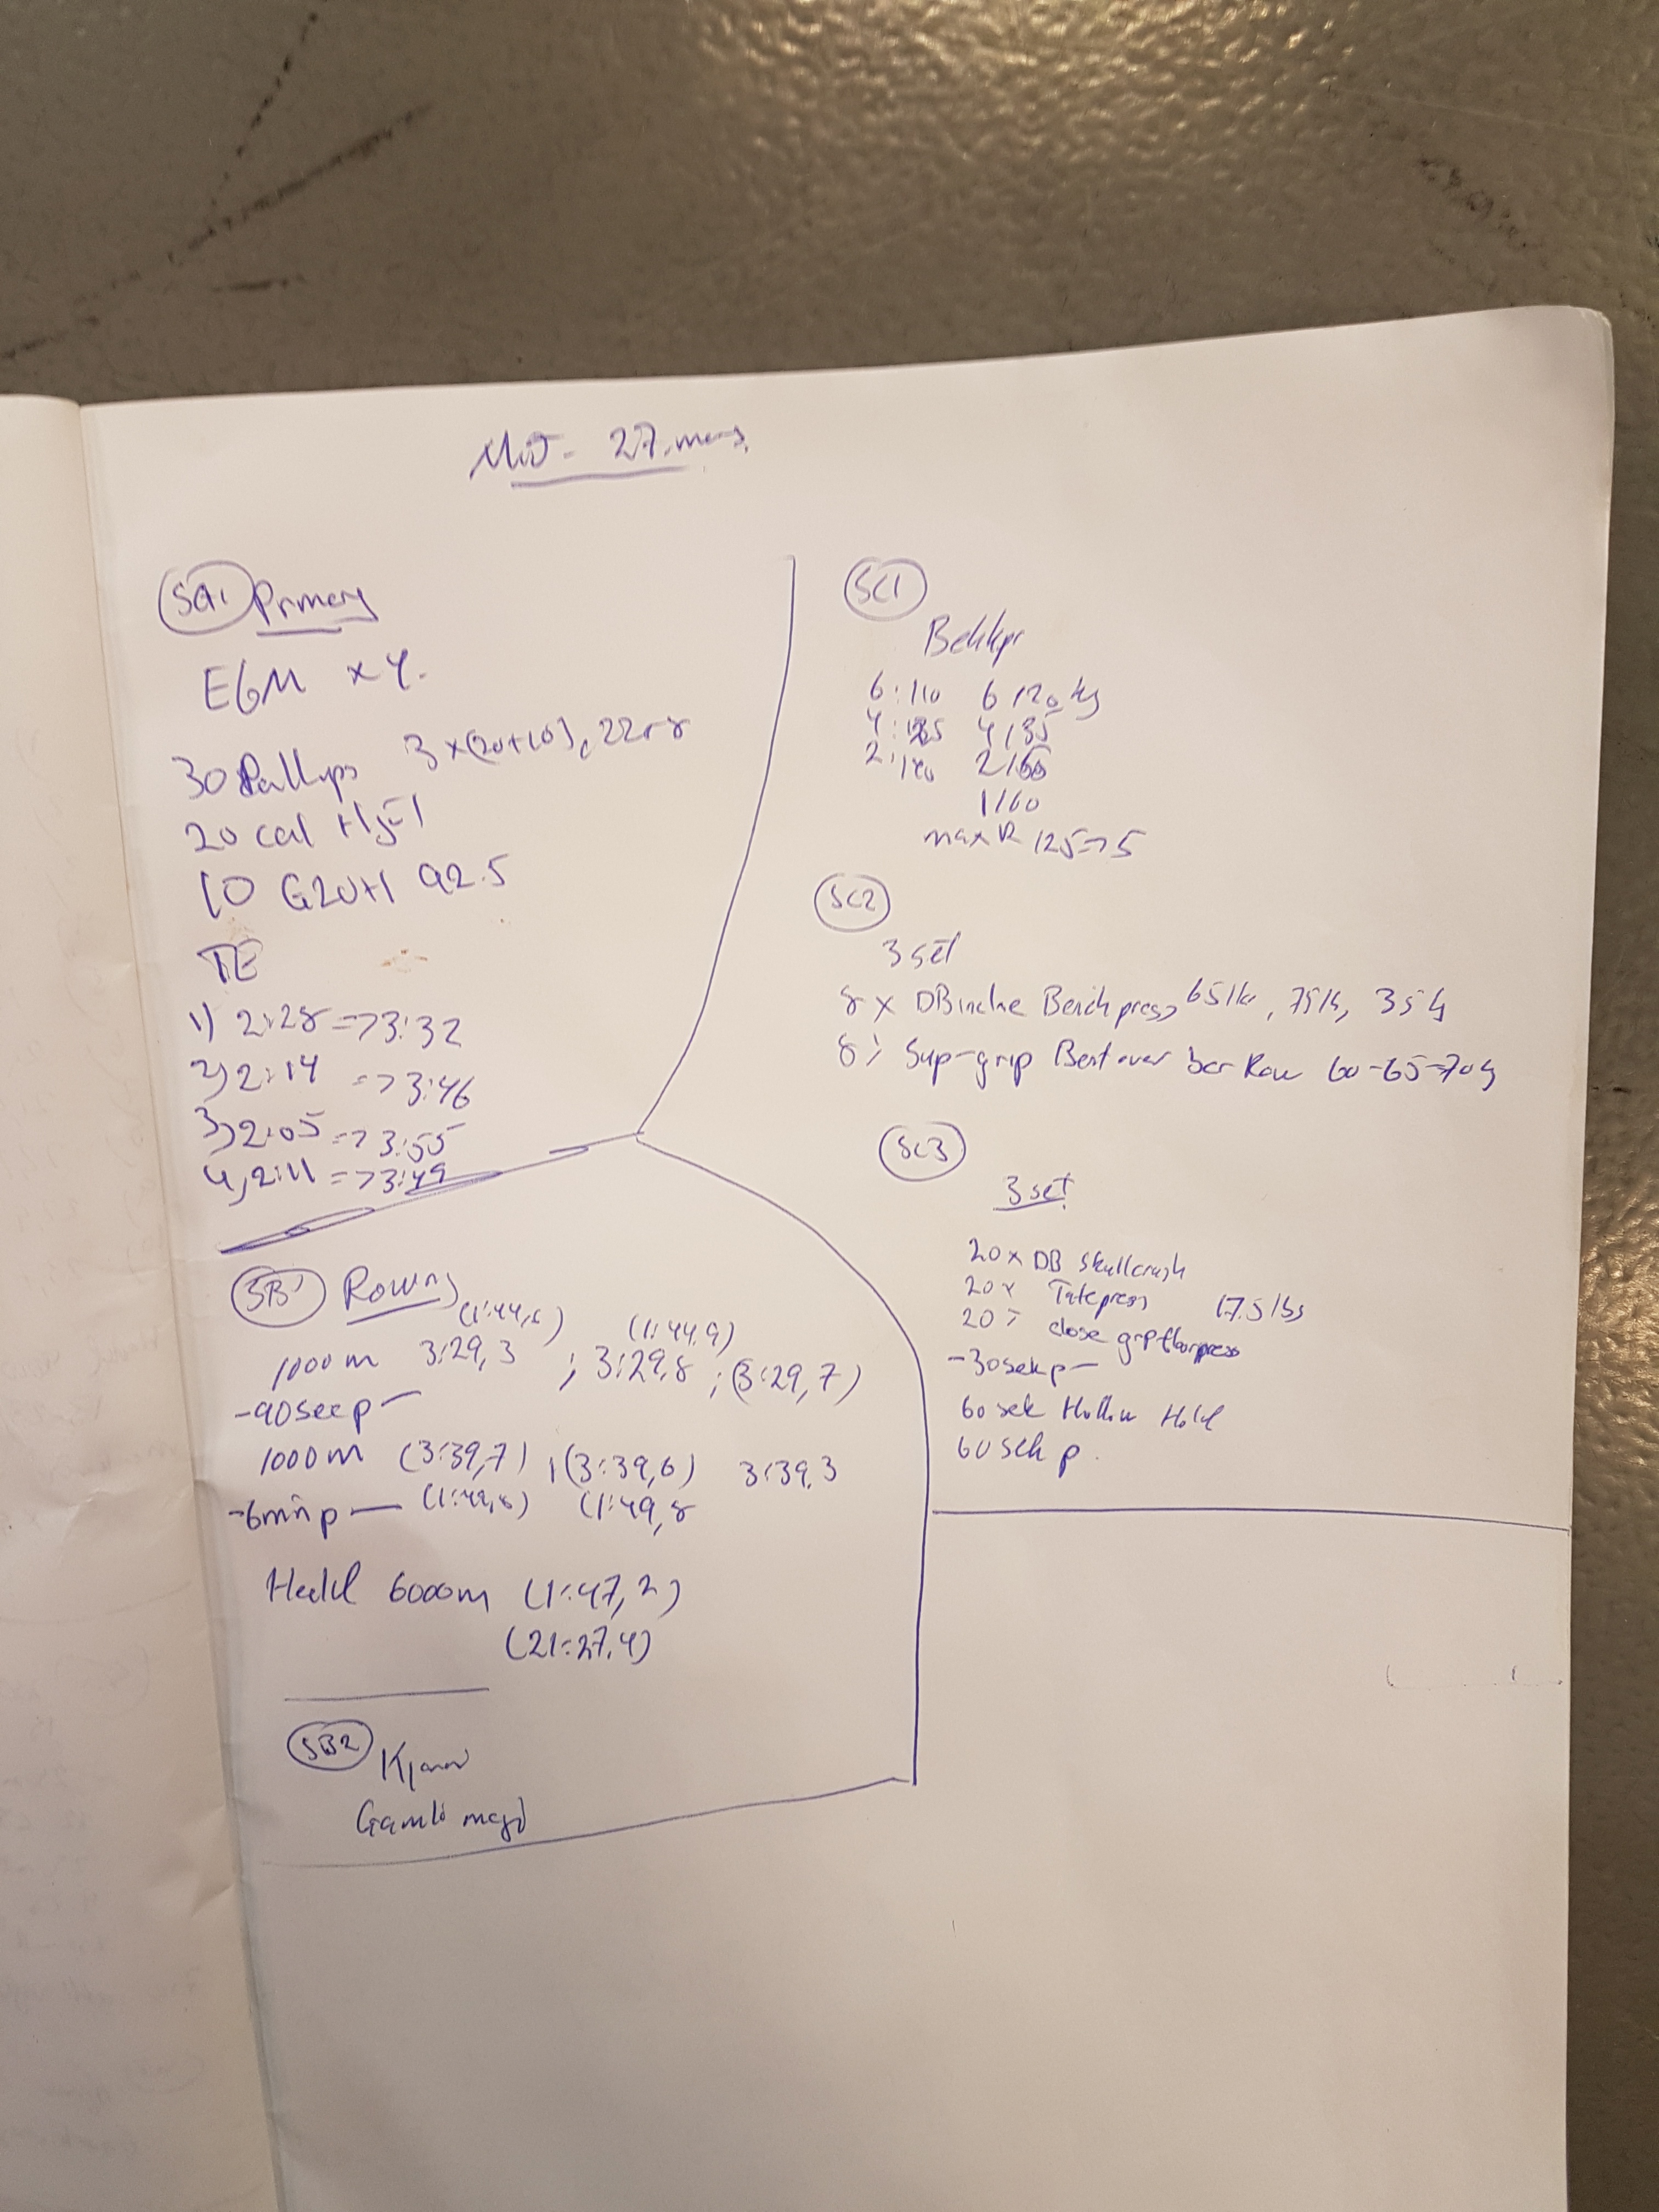 Mið - 27. mars.
SA1 Primary
E6M x 4.
30 Pullups 3x(20+10), 22+8
20 cal Hjól
10 G2OH 92.5
TE
1) 2:28 => 3:32
2) 2:14 => 3:46
3) 2:05 => 3:55
4) 2:11 => 3:49
SB1 Rowing
(1:44,6) (1:44,9)
1000m 3:29,3 ; 3:29,8 ; (3:29,7)
-90sec p-
1000m (3:39,7) ; (3:39,6) 3:39.3
-6min p- (1:49,8) (1:49,8
Heild 6000m (1:47,2)
(21:27.4)
SB2
Gamli
SC1
Bekkpr
6:110 6 120 kg
4:125 4 135
2:140 2 150
1 160
max R 125=>5
SC2
3 set
8 x DB incline Benchpress 65lb, 75lb, 35kg
8x Sup-grip Bent over bar Row 60-65-70kg
SC3
3 set
20x DB Skullcrush
20x Tatepress 17.5lbs
20x close grip floorpress
-30sek p-
60 sek Hollow Hold
60 sek p.